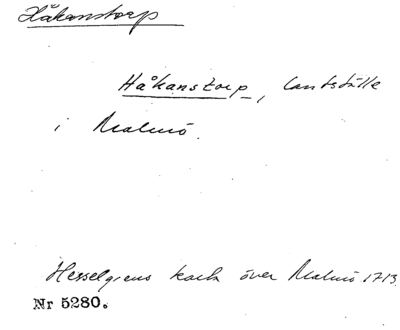 Håkanstorp
Håkanstorp, lantställe
i Malmö.
Hesselgrens karta över Malmö 1713.
Nr 5280.